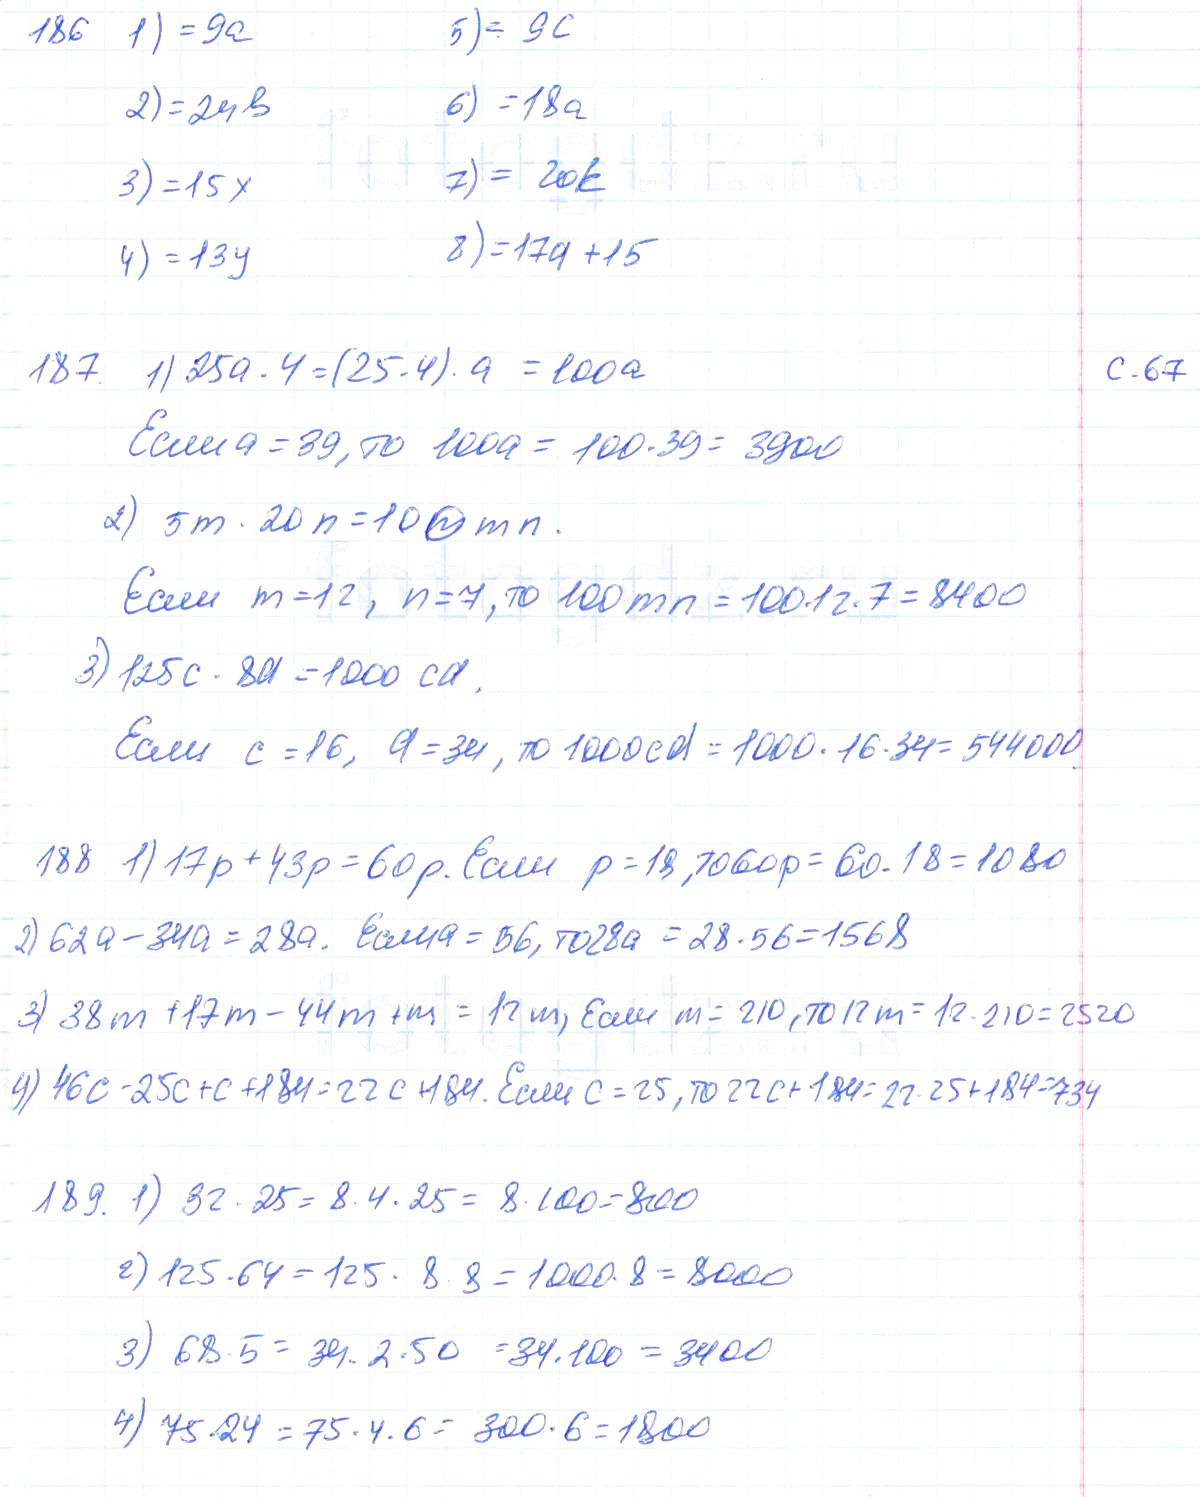 186 1) = 9a 5) = 9c
2) = 24b 6) = 18a
3) = 15x 7) = 20k
4) = 13y 8) = 17a + 15
187. 1) 25a · 4 = (25 · 4) · a = 100a с. 67
Если a = 39, то 100a = 100 · 39 = 3900
2) 5m · 20n = 100mn.
Если m = 12, n = 7, то 100mn = 100 · 12 · 7 = 8400
3) 125c · 8d = 1000cd.
Если c = 16, d = 34, то 1000cd = 1000 · 16 · 34 = 544000.
188 1) 17p + 43p = 60p. Если p = 18, то 60p = 60 · 18 = 1080
2) 62a – 34a = 28a. Если a = 56, то 28a = 28 · 56 = 1568
3) 38m + 17m – 44m + m = 12m, Если m = 210, то 12m = 12 · 210 = 2520
4) 46c – 25c + c + 184 = 22c + 184. Если c = 25, то 22c + 184 = 22 · 25 + 184 = 734
189. 1) 32 · 25 = 8 · 4 · 25 = 8 · 100 = 800
2) 125 · 64 = 125 · 8 · 8 = 1000 · 8 = 8000
3) 68 · 5 = 34 · 2 · 50 = 34 · 100 = 3400
4) 75 · 24 = 75 · 4 · 6 = 300 · 6 = 1800